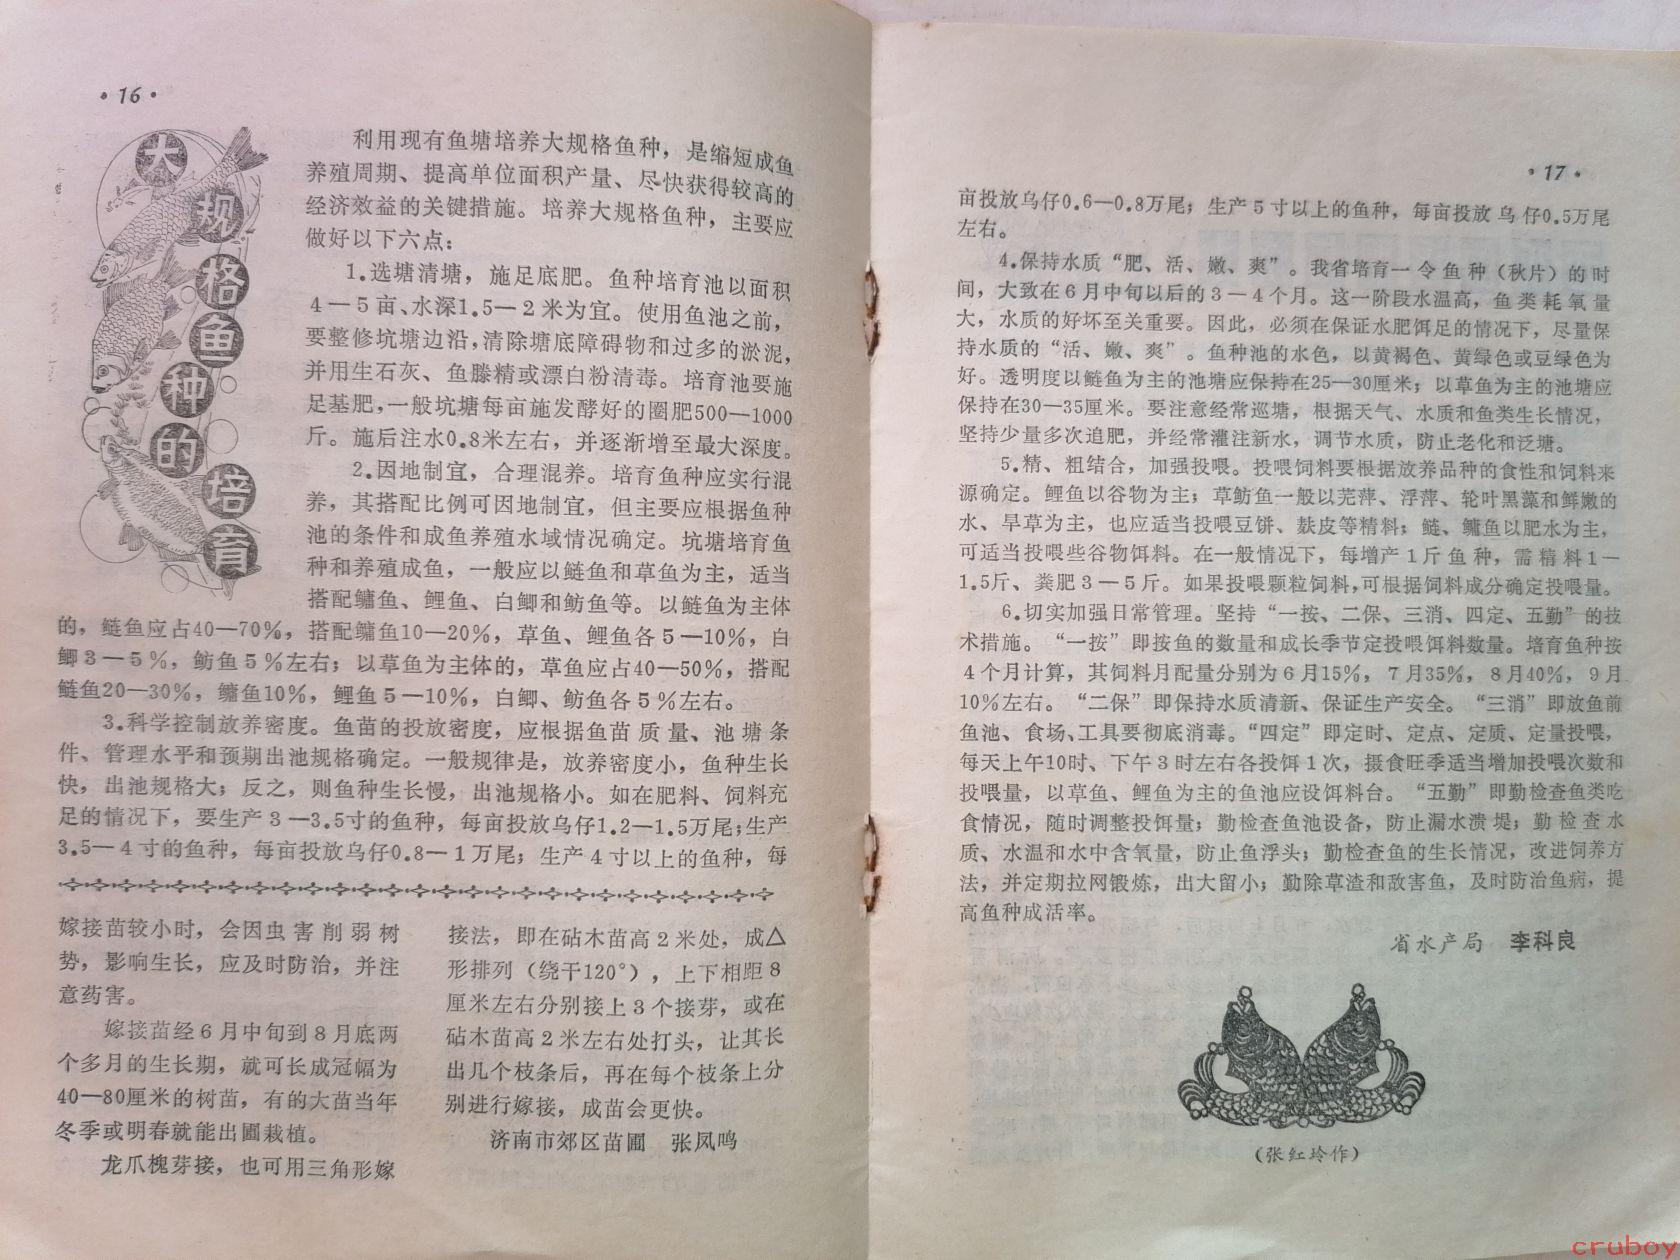 ·16·
大规格鱼种的培育
利用现有鱼塘培养大规格鱼种，是缩短成鱼
养殖周期、提高单位面积产量、尽快获得较高的
经济效益的关键措施。培养大规格鱼种，主要应
做好以下六点：
1.选塘清塘，施足底肥。鱼种培育池以面积
4—5亩、水深1.5—2米为宜。使用鱼池之前，
要整修坑塘边沿，清除塘底障碍物和过多的淤泥，
并用生石灰、鱼滕精或漂白粉清毒。培育池要施
足基肥，一般坑塘每亩施发酵好的圈肥500—1000
斤。施后注水0.8米左右，并逐渐增至最大深度。
2.因地制宜，合理混养。培育鱼种应实行混
养，其搭配比例可因地制宜，但主要应根据鱼种
池的条件和成鱼养殖水域情况确定。坑塘培育鱼
种和养殖成鱼，一般应以鲢鱼和草鱼为主，适当
搭配鳙鱼、鲤鱼、白鲫和鲂鱼等。以鲢鱼为主体
的，鲢鱼应占40—70%，搭配鳙鱼10—20%，草鱼、鲤鱼各5—10%，白
鲫3—5%，鲂鱼5%左右；以草鱼为主体的，草鱼应占40—50%，搭配
鲢鱼20—30%，鳙鱼10%，鲤鱼5—10%，白鲫、鲂鱼各5%左右。
3.科学控制放养密度。鱼苗的投放密度，应根据鱼苗质量、池塘条
件、管理水平和预期出池规格确定。一般规律是，放养密度小，鱼种生长
快，出池规格大；反之，则鱼种生长慢，出池规格小。如在肥料、饲料充
足的情况下，要生产3—3.5寸的鱼种，每亩投放乌仔1.2—1.5万尾；生产
3.5—4寸的鱼种，每亩投放乌仔0.8—1万尾；生产4寸以上的鱼种，每
嫁接苗较小时，会因虫害削弱树
势，影响生长，应及时防治，并注
意药害。
嫁接苗经6月中旬到8月底两
个多月的生长期，就可长成冠幅为
40—80厘米的树苗，有的大苗当年
冬季或明春就能出圃栽植。
龙爪槐芽接，也可用三角形嫁
接法，即在砧木苗高2米处，成△
形排列（绕干120°），上下相距8
厘米左右分别接上3个接芽，或在
砧木苗高2米左右处打头，让其长
出几个枝条后，再在每个枝条上分
别进行嫁接，成苗会更快。
济南市郊区苗圃　张凤鸣
·17·
亩投放乌仔0.6—0.8万尾；生产5寸以上的鱼种，每亩投放乌仔0.5万尾
左右。
4.保持水质“肥、活、嫩、爽”。我省培育一令鱼种（秋片）的时
间，大致在6月中旬以后的3—4个月。这一阶段水温高，鱼类耗氧量
大，水质的好坏至关重要。因此，必须在保证水肥饵足的情况下，尽量保
持水质的“活、嫩、爽”。鱼种池的水色，以黄褐色、黄绿色或豆绿色为
好。透明度以鲢鱼为主的池塘应保持在25—30厘米；以草鱼为主的池塘应
保持在30—35厘米。要注意经常巡塘，根据天气、水质和鱼类生长情况，
坚持少量多次追肥，并经常灌注新水，调节水质，防止老化和泛塘。
5.精、粗结合，加强投喂。投喂饲料要根据放养品种的食性和饲料来
源确定。鲤鱼以谷物为主；草鲂鱼一般以芜萍、浮萍、轮叶黑藻和鲜嫩的
水、旱草为主，也应适当投喂豆饼、麸皮等精料；鲢、鳙鱼以肥水为主，
可适当投喂些谷物饵料。在一般情况下，每增产1斤鱼种，需精料1—
1.5斤、粪肥3—5斤。如果投喂颗粒饲料，可根据饲料成分确定投喂量。
6.切实加强日常管理。坚持“一按、二保、三消、四定、五勤”的技
术措施。“一按”即按鱼的数量和成长季节定投喂饵料数量。培育鱼种按
4个月计算，其饲料月配量分别为6月15%，7月35%，8月40%，9月
10%左右。“二保”即保持水质清新、保证生产安全。“三消”即放鱼前
鱼池、食场、工具要彻底消毒。“四定”即定时、定点、定质、定量投喂，
每天上午10时、下午3时左右各投饵1次，摄食旺季适当增加投喂次数和
投喂量，以草鱼、鲤鱼为主的鱼池应设饵料台。“五勤”即勤检查鱼类吃
食情况，随时调整投饵量；勤检查鱼池设备，防止漏水溃堤；勤检查水
质、水温和水中含氧量，防止鱼浮头；勤检查鱼的生长情况，改进饲养方
法，并定期拉网锻炼，出大留小；勤除草渣和敌害鱼，及时防治鱼病，提
高鱼种成活率。
省水产局　李科良
（张红玲作）
cruboy